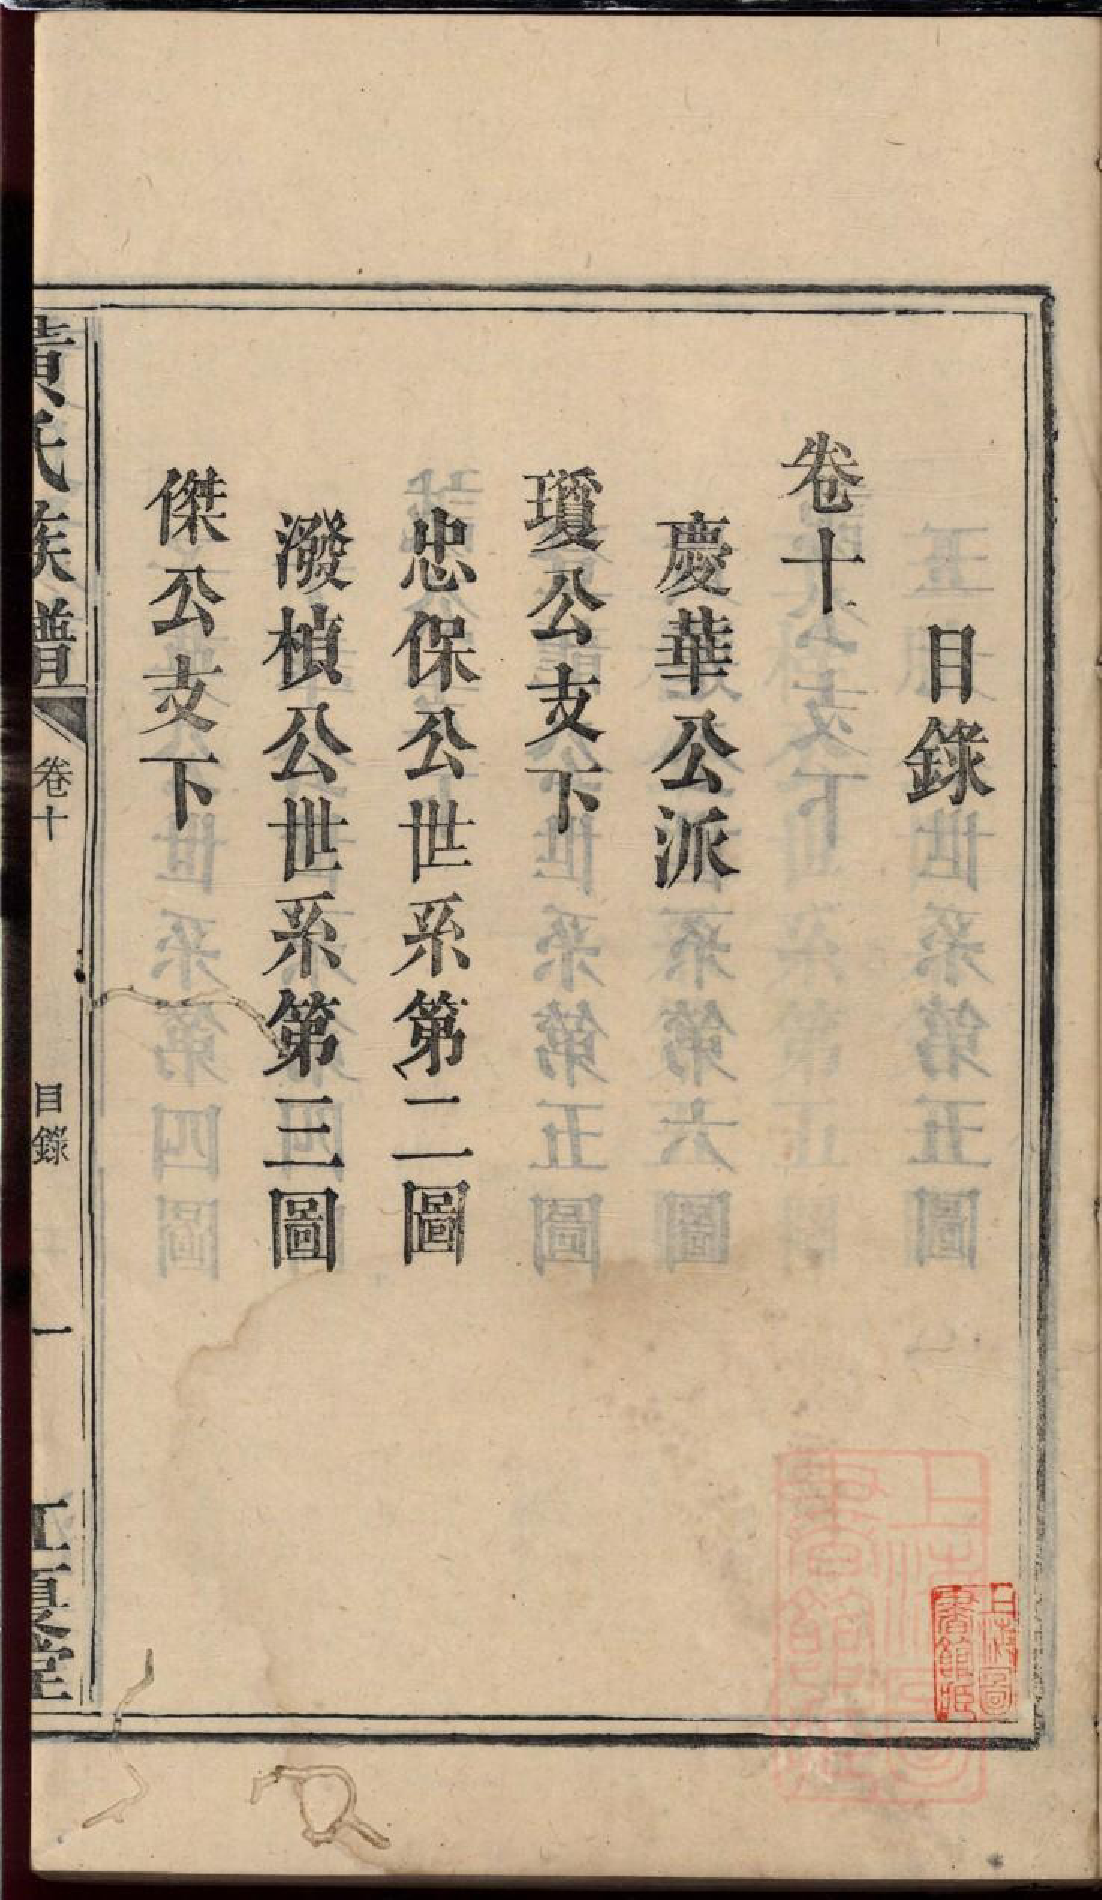 目錄
卷十
慶華公派
瓊公支下
忠保公世系第二圖
潑楨公世系第三圖
傑公支下
黃氏族譜
卷十
目錄
一
江夏堂
上海圖書館藏